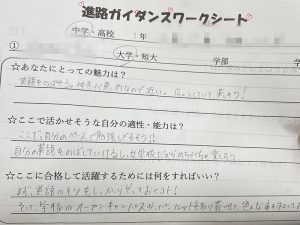 進路ガイダンスワークシート
中学・高校 1年
① 大学・短大 学部
☆あなたにとっての魅力は?
英語ものばせる。神奈川県内なので近い。 楽しそう!
☆ここで活かせそうな自分の適性・能力は?
ここで、自分のペースで勉強しそう!!
自分の英語ものばしていけるし、女学校だからめちゃくちゃ楽しそう。
☆ここに合格して活躍するためには何をすればいい?
まず、英語のキソをしっかりやっておくコト!
そして、学校のオープンキャンパスや、パンフレットを取り寄せて、